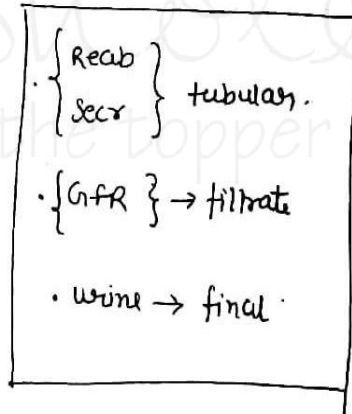 . { Reab
Secr } tubular.
. {GFR } → filtrate
. urine → final.
the topper